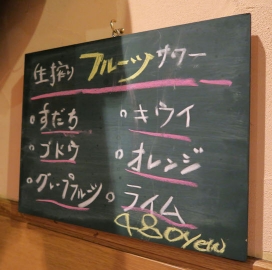 生搾り フルーツ サワー
。すだち
。キウイ
。ブドウ
。オレンジ
。グレープフルーツ
。ライム
480yen